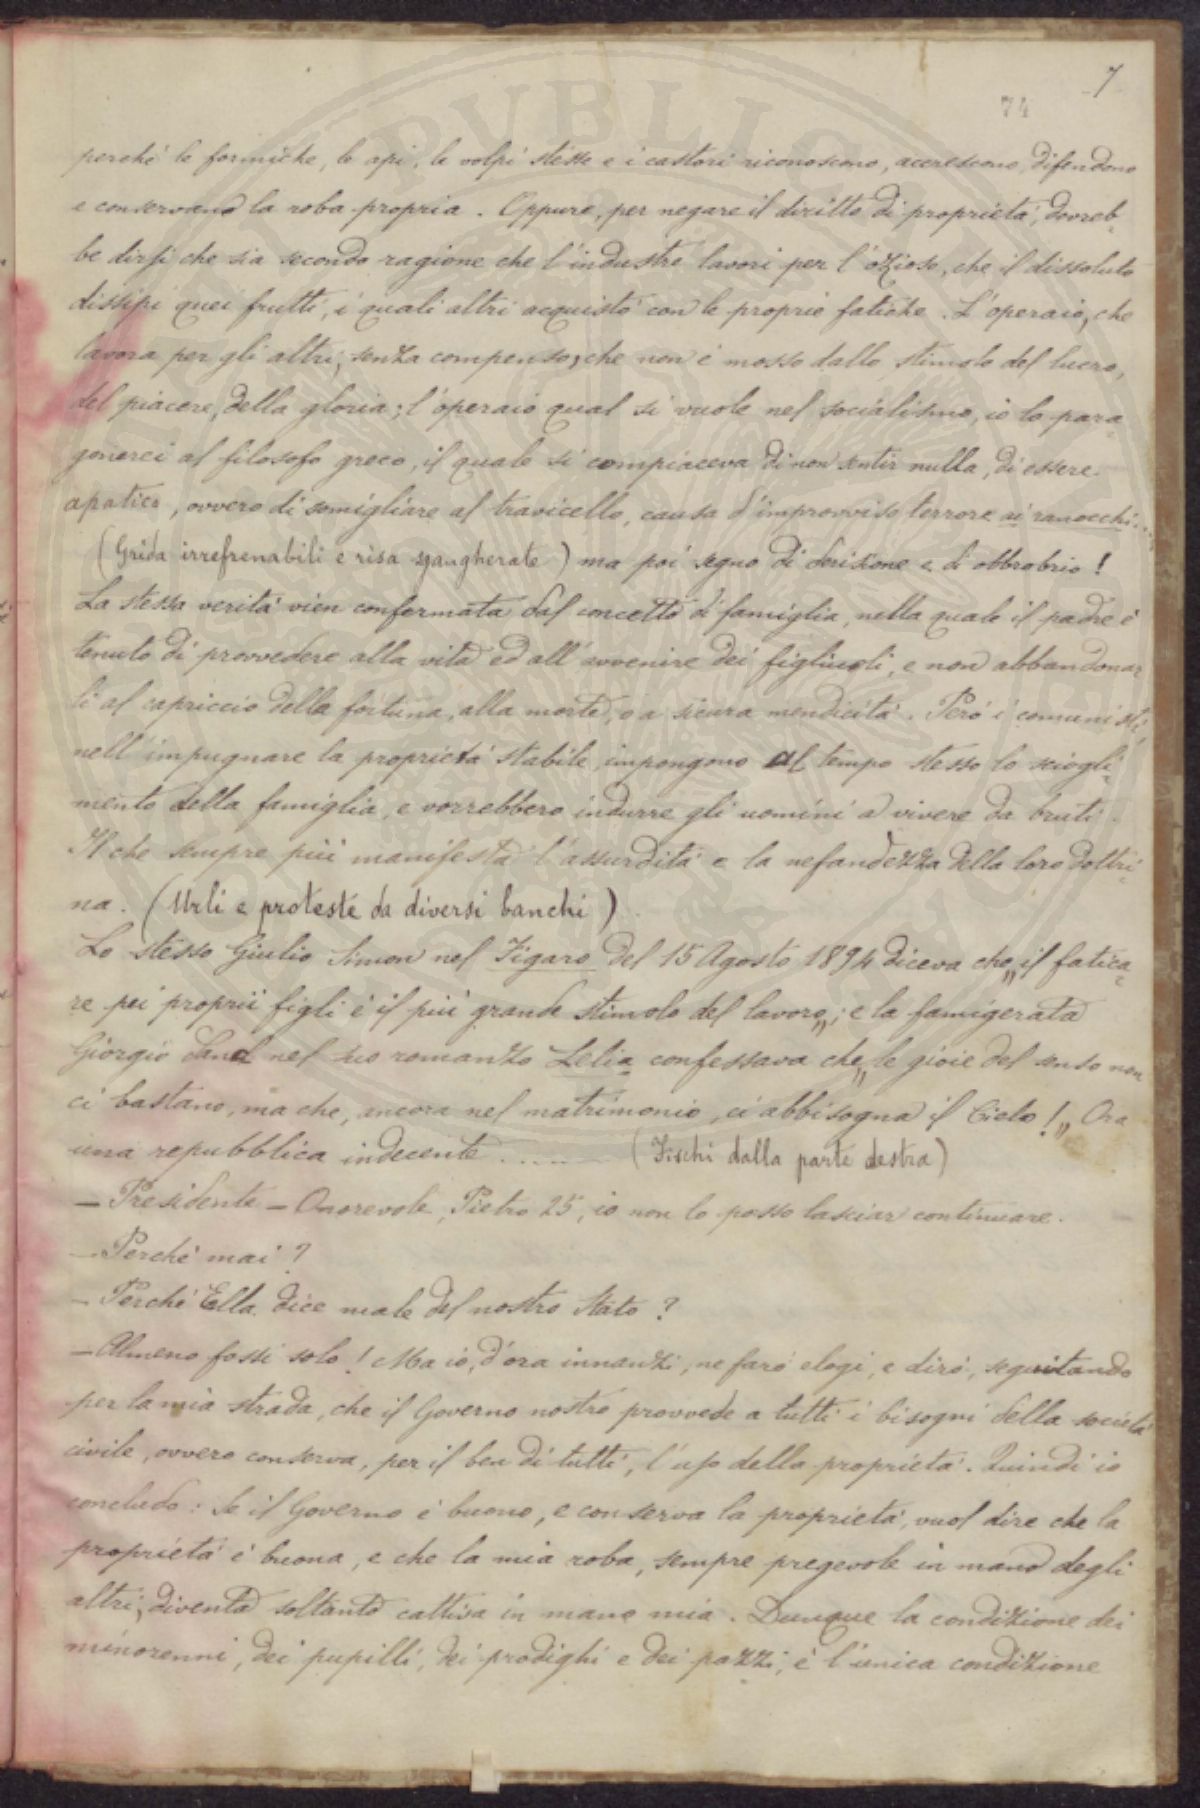 7
74
perchè le formiche, le api, le volpi stesse e i castori riconoscono, accrescono, difendono
e conservano la roba propria. Oppure, per negare il diritto di proprietà, dovreb-
be dirsi che sia secondo ragione che l'industre lavori per l'ozioso, che il dissoluto
dissipi quei frutti, i quali altri acquistò con le proprie fatiche. L'operaio, che
lavora per gli altri, senza compenso, che non è mosso dallo stimolo del lucro,
del piacere, della gloria; l'operaio qual si vuole nel socialismo, io lo para-
gonerei al filosofo greco, il quale si compiaceva di non sentir nulla, di essere
apatico, ovvero di somigliare al travicello, causa d'improvviso terrore ai ranocchi....
(Grida irrefrenabili e risa sgangherate) ma poi segno di derisione e di obbrobrio!
La stessa verità vien confermata dal concetto di famiglia, nella quale il padre è
tenuto di provvedere alla vita ed all'avvenire dei figliuoli, e non abbandonar
li al capriccio della fortuna, alla morte, o a sicura mendicità. Però i comunisti,
nell'impugnare la proprietà stabile, impongono al tempo stesso lo sciogli-
mento della famiglia, e vorrebbero indurre gli uomini a vivere da bruti.
Il che sempre più manifesta l'assurdità e la nefandezza della loro dottri-
na. (Urli e proteste da diversi banchi)
Lo stesso Giulio Simon nel Figaro del 15 Agosto 1894 diceva che „il fatica-
re pei proprii figli è il più grande stimolo del lavoro„; e la famigerata
Giorgio Sand nel suo romanzo Lelia confessava che „le gioie del senso non
ci bastano, ma che, ancora nel matrimonio, ci abbisogna il Cielo!„ Ora
una repubblica indecente ...... (Fischi dalla parte destra)
– Presidente – Onorevole, Pietro 25, io non lo posso lasciar continuare.
– Perchè mai?
– Perchè Ella dice male del nostro Stato?
– Almeno fossi solo! Ma io, d'ora innanzi, ne farò elogi, e dirò, seguitando
per la mia strada, che il Governo nostro provvede a tutti i bisogni della società
civile, ovvero conserva, per il ben di tutti, l'uso della proprietà. Quindi io
concludo: Se il Governo è buono, e conserva la proprietà, vuol dire che la
proprietà è buona, e che la mia roba, sempre pregevole in mano degli
altri, diventa soltanto cattiva in mano mia. Dunque la condizione dei
minorenni, dei pupilli, dei prodighi e dei pazzi, è l'unica condizione